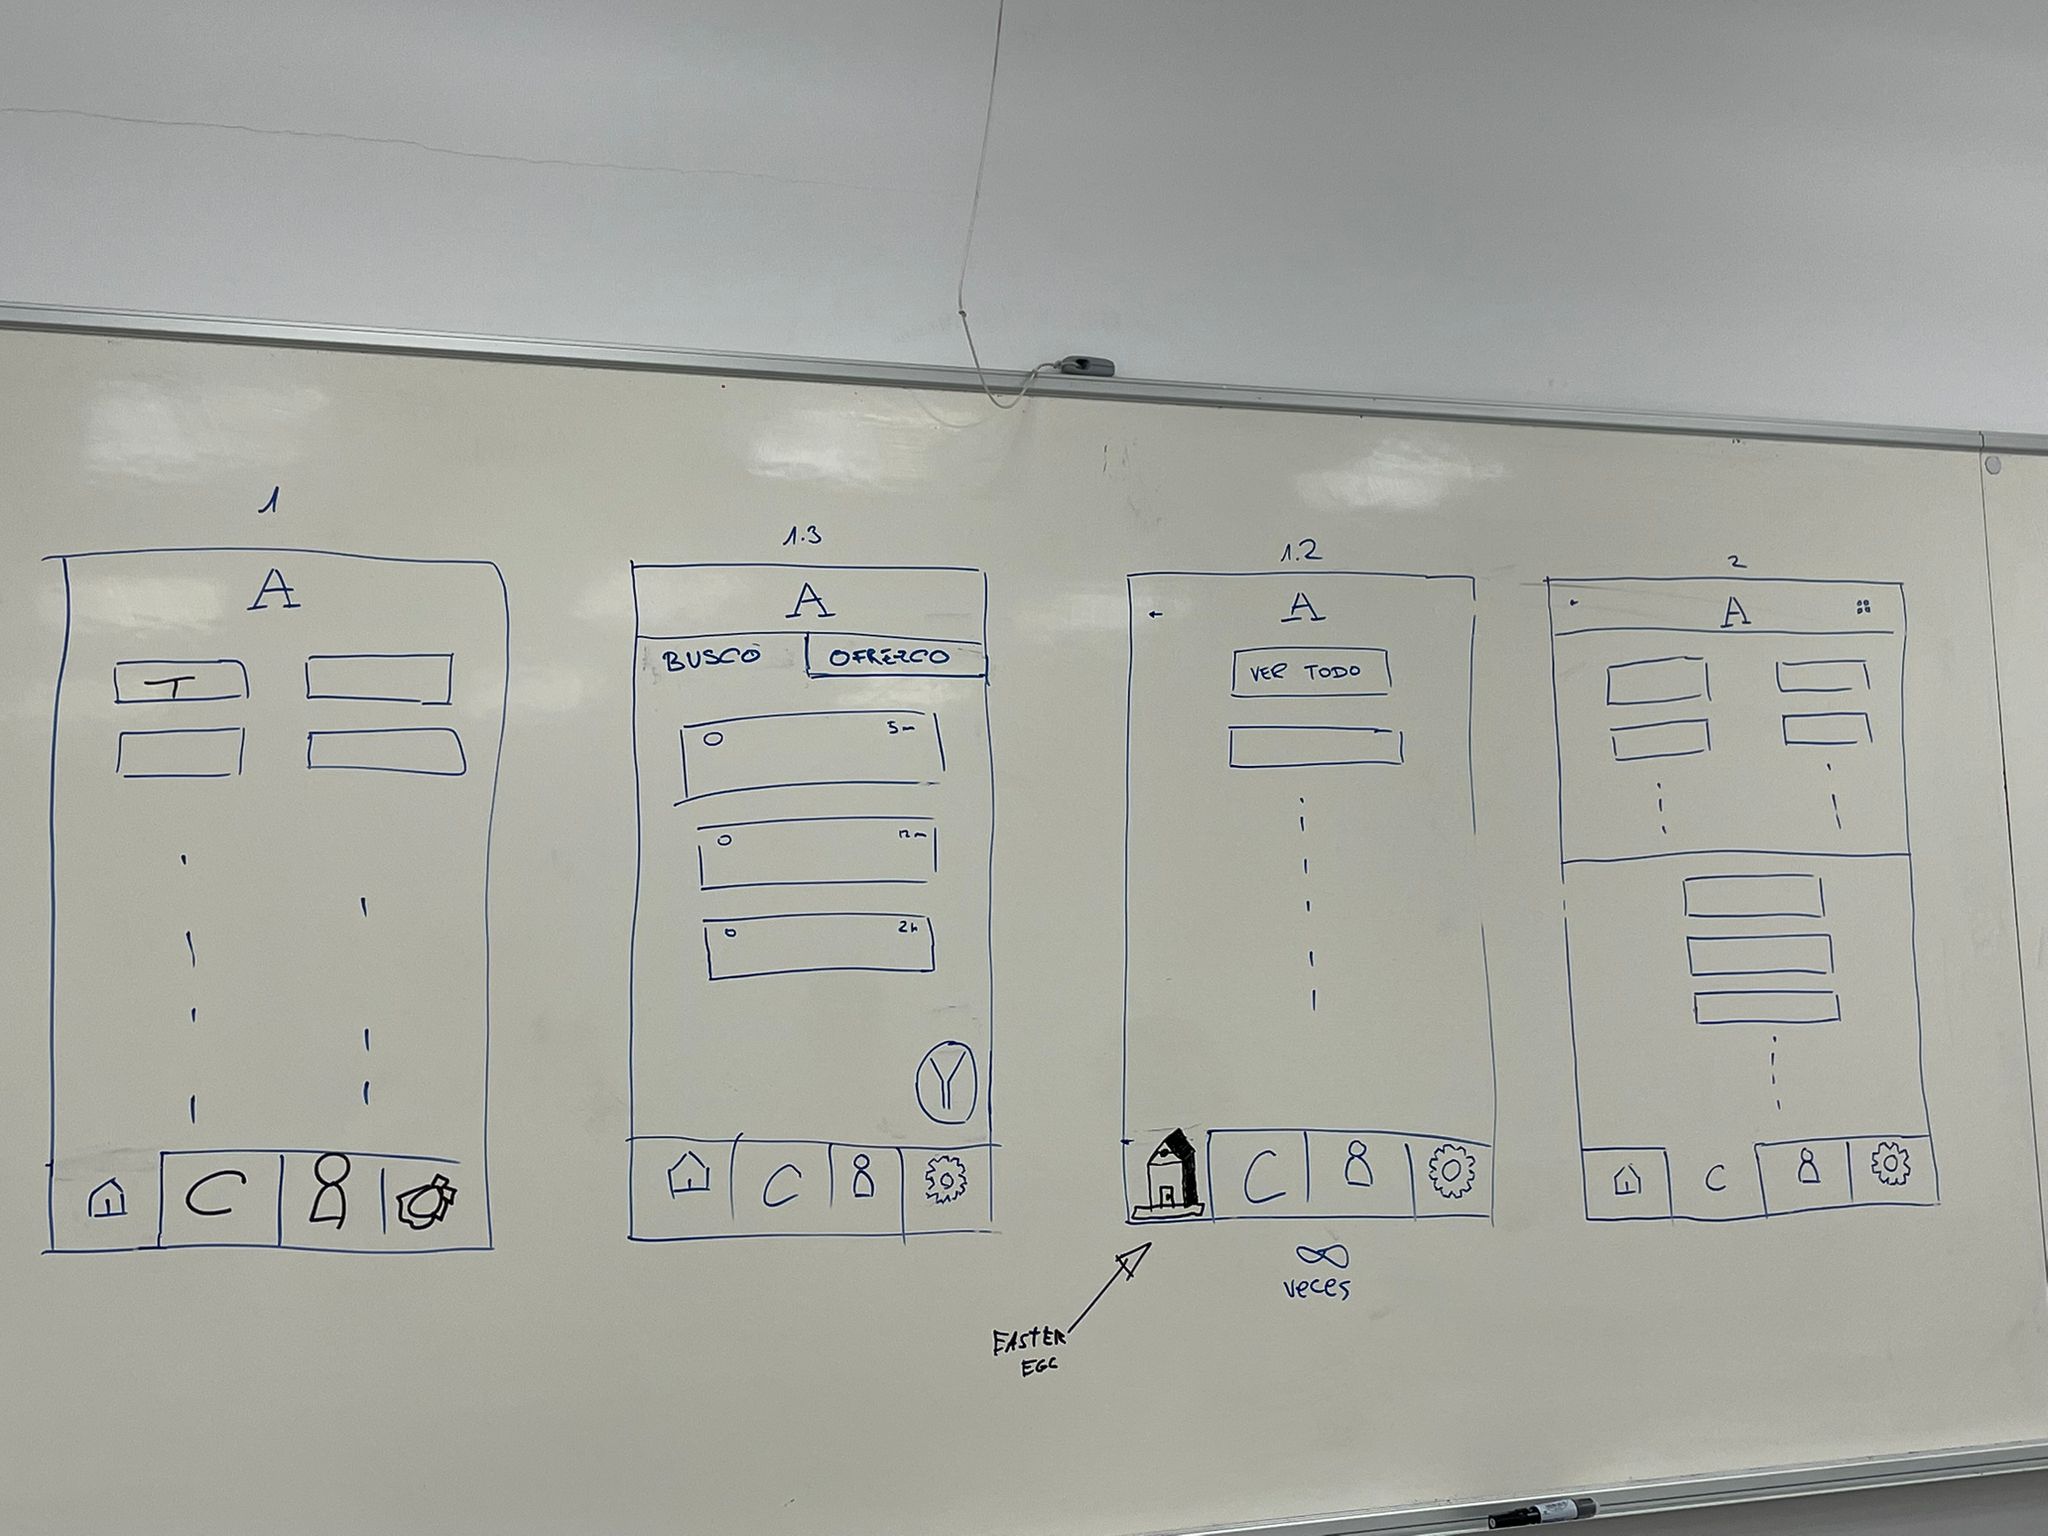 1
A
T
C
1.3
A
BUSCO
OFREZCO
5m
12m
2h
Y
C
1.2
←
A
VER TODO
C
∞
veces
EASTER
EGG
2
←
A
C